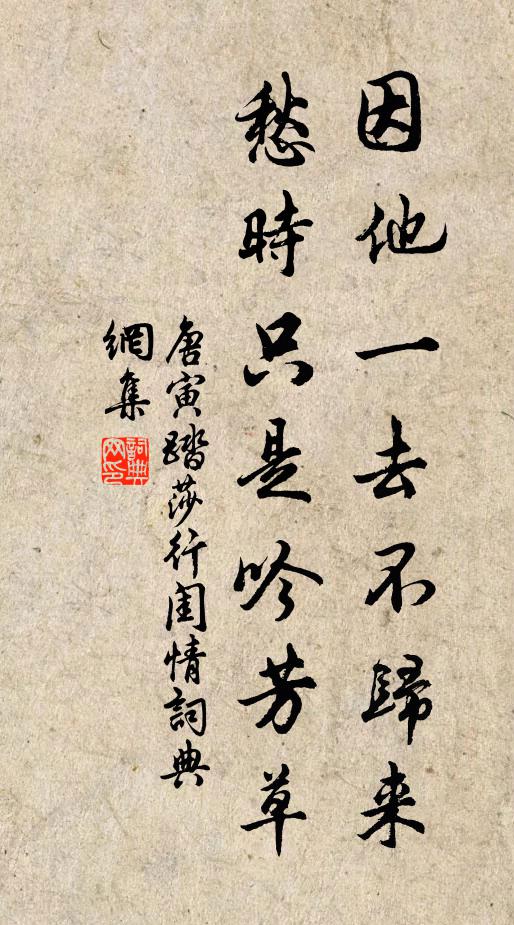 因他一去不歸来
愁時只是吟芳草
唐寅踏莎行闺情詞典
網集
詞典网印